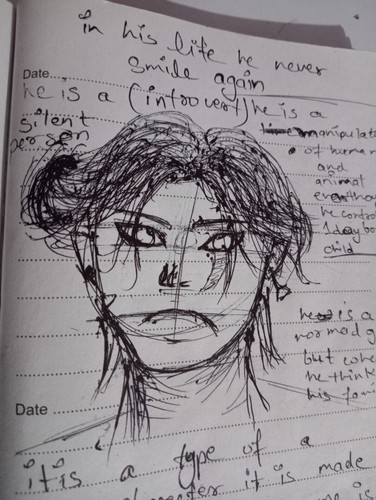 in his life he never
smile again
Date
he is a (introvert) he is a
silent
person
manipulate
of human
and
animal
he control
1 day bo
child
he is a
normal g
but whe
he think
his fami
Date
it is a type of a
it is made